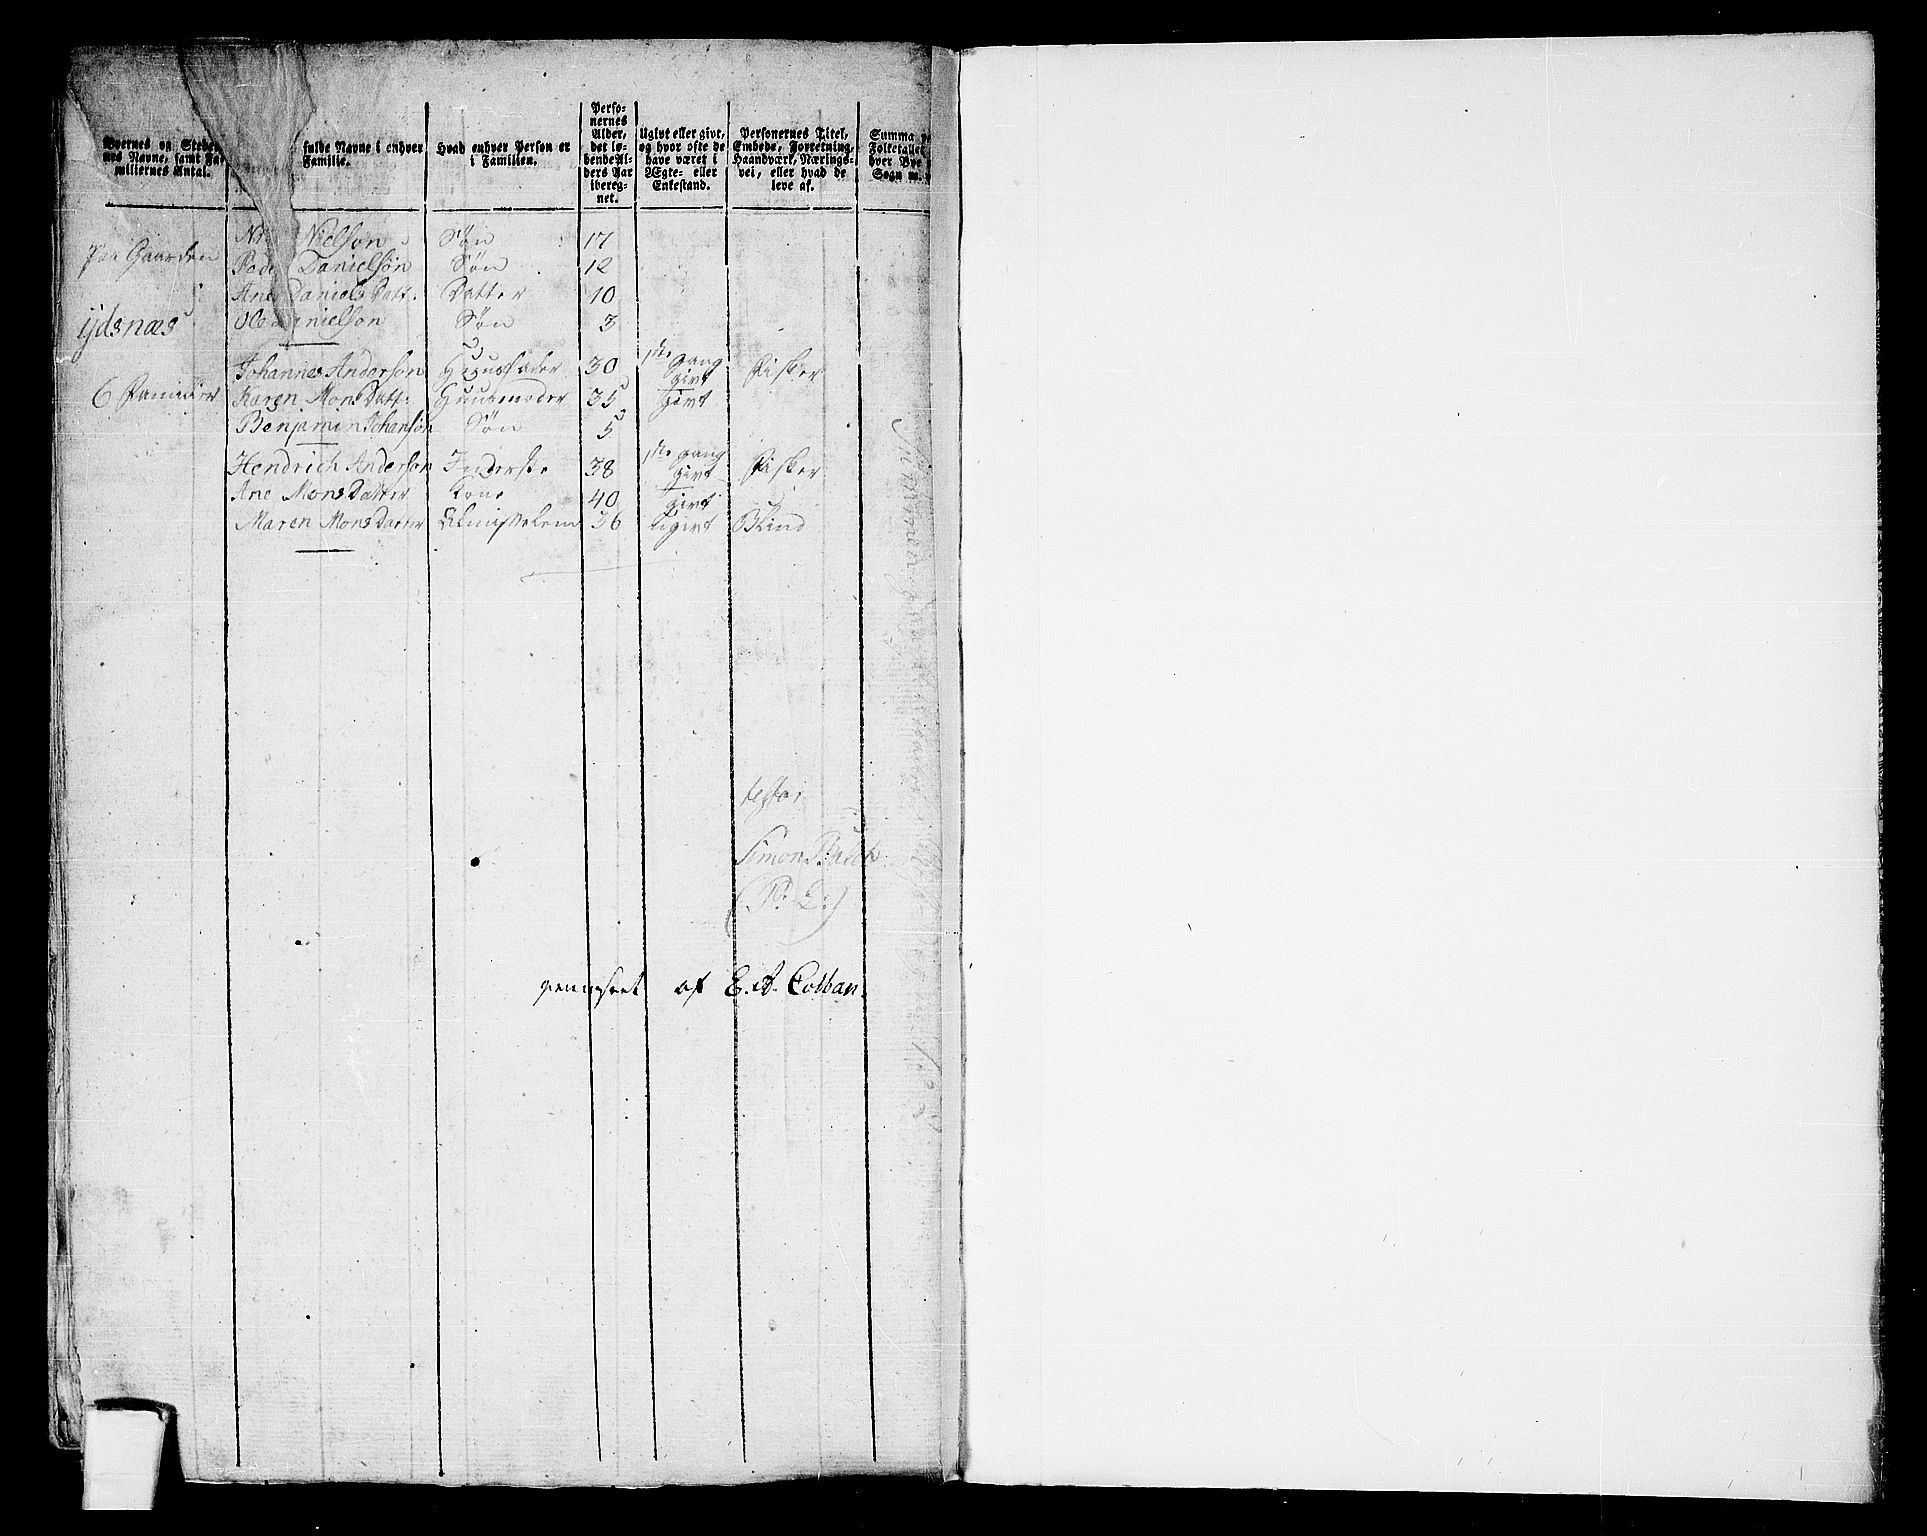 Byernes og Stedernes Navne, samt Familiernes Antal.
fulde Navne i enhver Familie.
Hvad enhver Person er i Familien.
Personernes Alder, det løbende Alders Aar iberegnet.
Ugivt eller givt, og hvor ofte de have været i Ægte- eller Enkestand.
Personernes Titel, Embede, Forretning, Haandværk, Næringsvei, eller hvad de leve af.
Summa
Folketallet
hver Bye
Sogn
Nielson Søn 17
Paa Gaarden
Danielsøn Søn 12
Ane Daniels Datt: Datter 10
ijdsnæs
Ole Søn 3
Johannes Anderson Huusfader 30 1ste gang givt Fisker
6 Familier
Karen Mons Datt: Huusmoder 35 givt
Benjamin Johansøn Søn 5
Hendrich Anderson Inderste 38 1ste gang givt Fisker
Ane Mons Datter Kone 40 givt
Maren Mons Datter Almisselem 36 ugivt Blind
testor
Simon
af E. A. Colban.